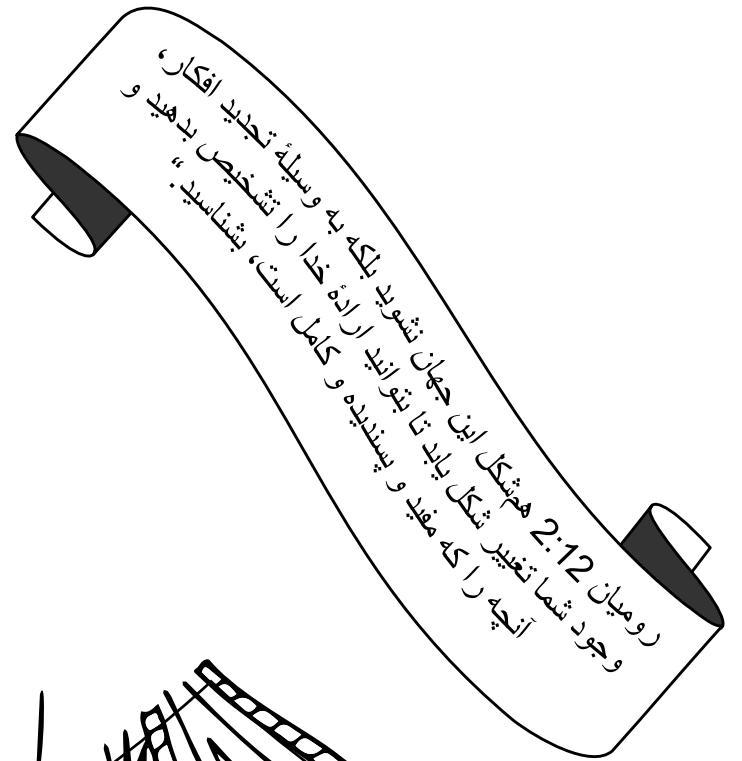 رومیان 2:12 هم‌شکل این جهان نشوید بلکه به وسیلهٔ تجدید افکار،
وجود شما تغییر شکل یابد تا بتوانید ارادهٔ خدا را تشخیص بدهید و
آنچه را که مفید و پسندیده و کامل است، بشناسید.“